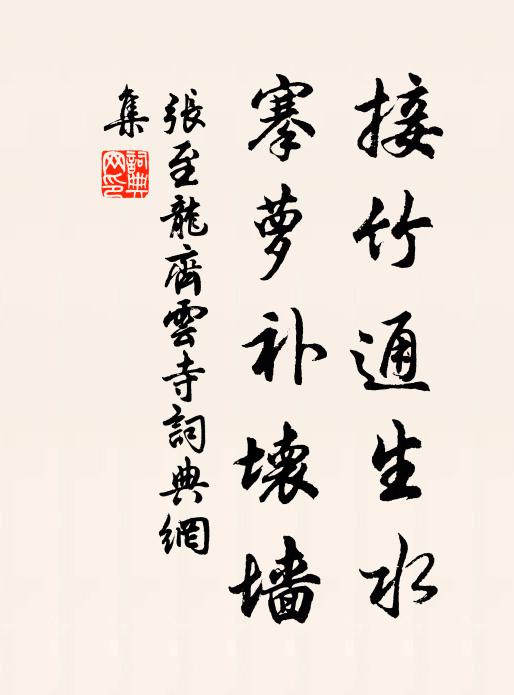 接竹通生水
搴萝补壊墙
張至龍齊雲寺詞典網
集
詞典
网印